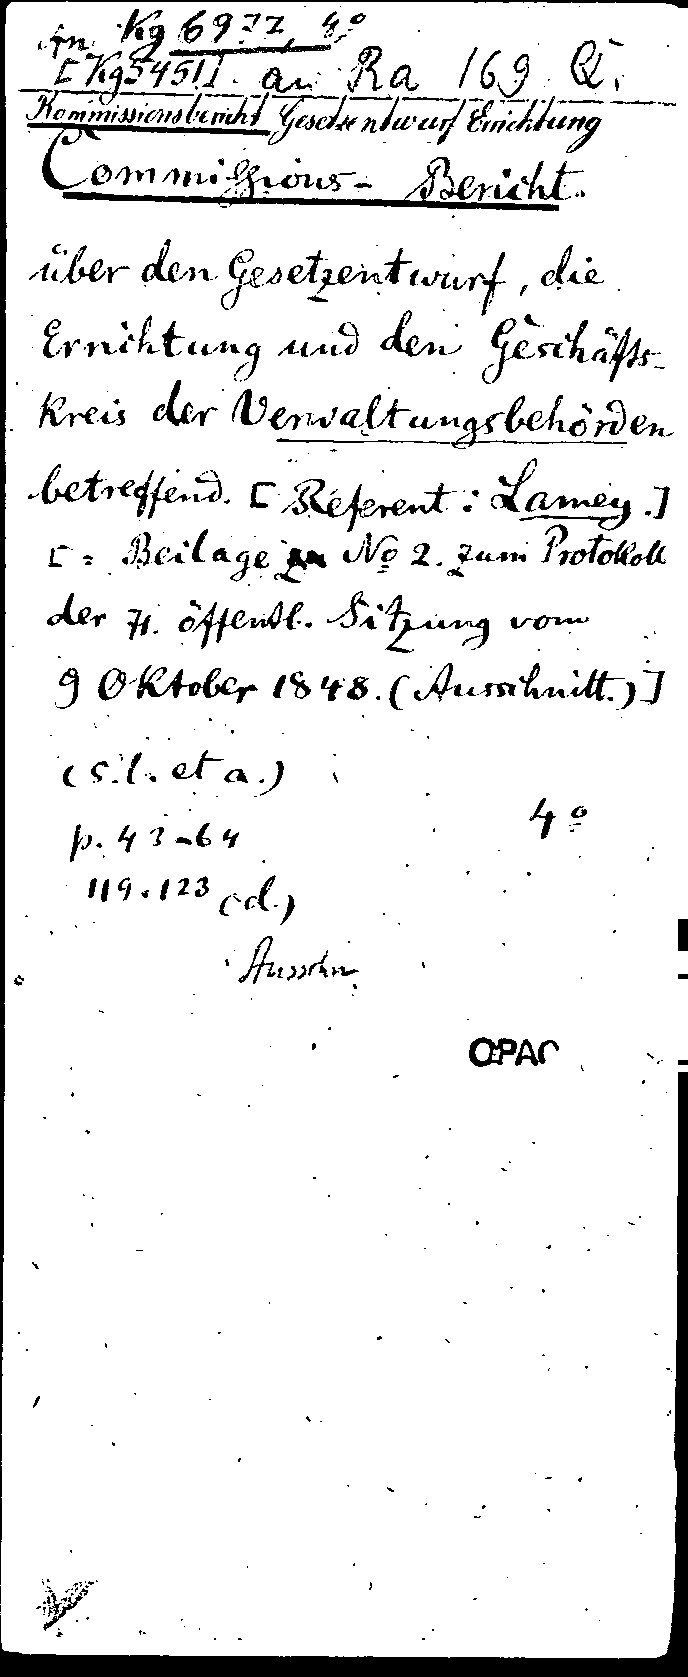 an Kg 6977, 4º
[Kg 3451 I. an Ra 169 Q.
Kommissionsbericht Gesetzentwurf Errichtung
Commissions- Bericht.
über den Gesetzentwurf, die
Errichtung und den Geschäfts-
kreis der Verwaltungsbehörden
betreffend. [Referent: Lamey.]
[= Beilage No 2. zum Protokoll
der 71. öffentl. Sitzung vom
9 Oktober 1848. (Ausschnitt.)]
(s.l. et a.)
4º
p. 43-64
119-123 (d.)
Ausschn.
OPAC